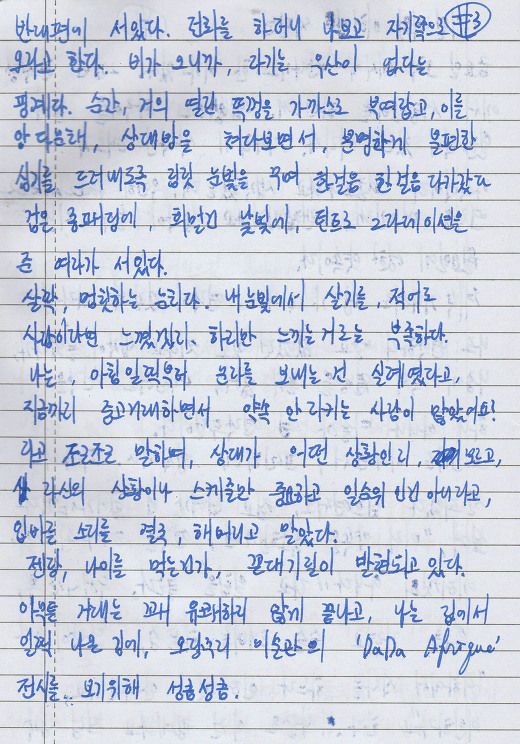 반대편에 서있다. 전화를 하더니 나보고 자기쪽으로 #3
오라고 한다. 비가 오니까, 자기는 우산이 없다는
핑계다. 순간, 거의 열린 뚜껑을 가까스로 부여잡고, 이를
앙다문채, 상대방을 쳐다보면서, 분명하게 불편한
심기를 드러내도록 눈빛을 쏘며 한걸음 한걸음 다가갔다
검은 롱패딩에, 희멀건 낯빛에, 틴트로 그라데이션을
준 여자가 서있다.
살짝, 멈칫하는 눈치다. 내 눈빛에서 살기를, 적어도
사람이라면 느꼈겠지. 하지만 느끼는거로는 부족하다.
나는, 아침일찍부터 문자를 보내는건 실례였다고,
지금까지 중고거래하면서 약속 안지키는 사람이 많았어요!
라고 조근조근 말하며, 상대가 어떤 상황인지, 보고,
자신의 상황이나 스케줄만 중요하고 일순위인건 아니라고,
입바른 소리를 열국, 해버리고 말았다.
젠장, 나이를 먹는건가, 꼰대기질이 발현되고 있다.
아무튼 거래는 꽤 유쾌하지 않게 끝나고, 나는 집에서
일찍 나온 김에, 오랑주리 미술관의 'DaDa Afrique'
전시를.. 보기위해 성큼성큼.